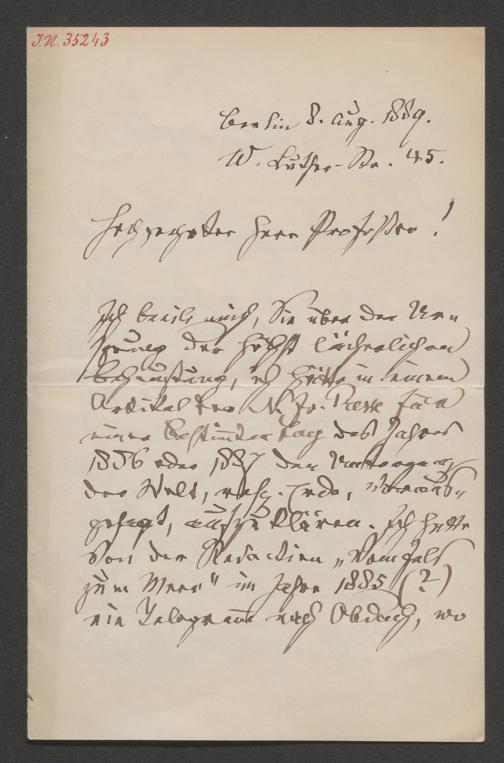 J.N. 35243
Berlin 8. Aug. 1889.
W. Luther-Str. 45.
Hochgeehrter Herr Professor!
Ich beeile mich, Sie über den Ur-
sprung der höchst lächerlichen
Behauptung, ich hätte in einem
Artikel der N. Fr. Presse für
einen bestimmten Tag des Jahres
1886 oder 1887 den Untergang
der Welt, resp. Erde, vorausge-
gesagt, aufzuklären. Ich hatte
von der Redaction „Vom Fels
zum Meer" im Jahre 1885 (?)
ein Telegramm nach Obdach, wo